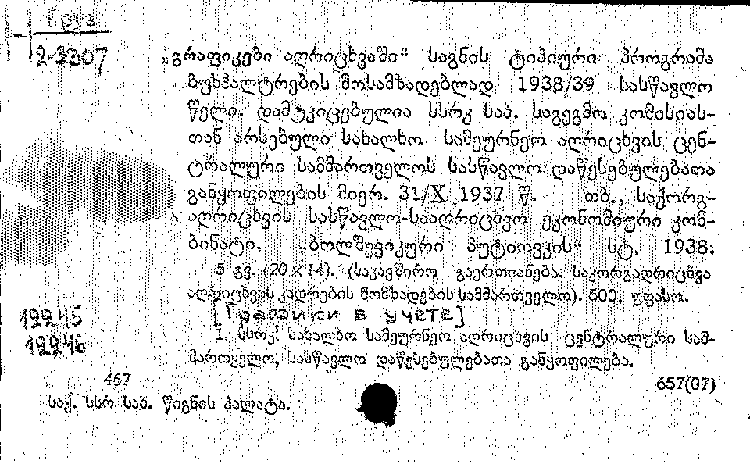 2-3207
„გრაფიკები აღრიცხვაში“ საგნის ტიპიური პროგრამა
ბუხჰალტრების მოსამზადებლად 1938/39 სასწავლო
წელი. დამტკიცებულია სსრკ სახ. საგეგმო კომისიას-
თან არსებული სახალხო სამეურნეო აღრიცხვის ცენ-
ტრალური სამმართველოს სასწავლო დაწესებულებათა
განყოფილების მიერ. 31/X 1937 წ. თბ., საქორგ-
აღრიცხვის სასწავლო-სააღრიცხვო ეკონომიური კომ-
ბინატი. ბოლშევიკური სტ. 1938.
5 გვ. (20×14). (საკავშირო გაერთიანება საორგაღრიცხვა
აღრიცხვის კადრების მომზადების სამმართველო). 500. უფასო.
[Графики в учете]
1. სსრკ, სახალხო სამეურნეო აღრიცხვის ცენტრალური სამ-
მართველო, სასწავლო დაწესებულებათა განყოფილება.
19945
19946
467
657(07)
საქ. სსრ სახ. წიგნის პალატა.